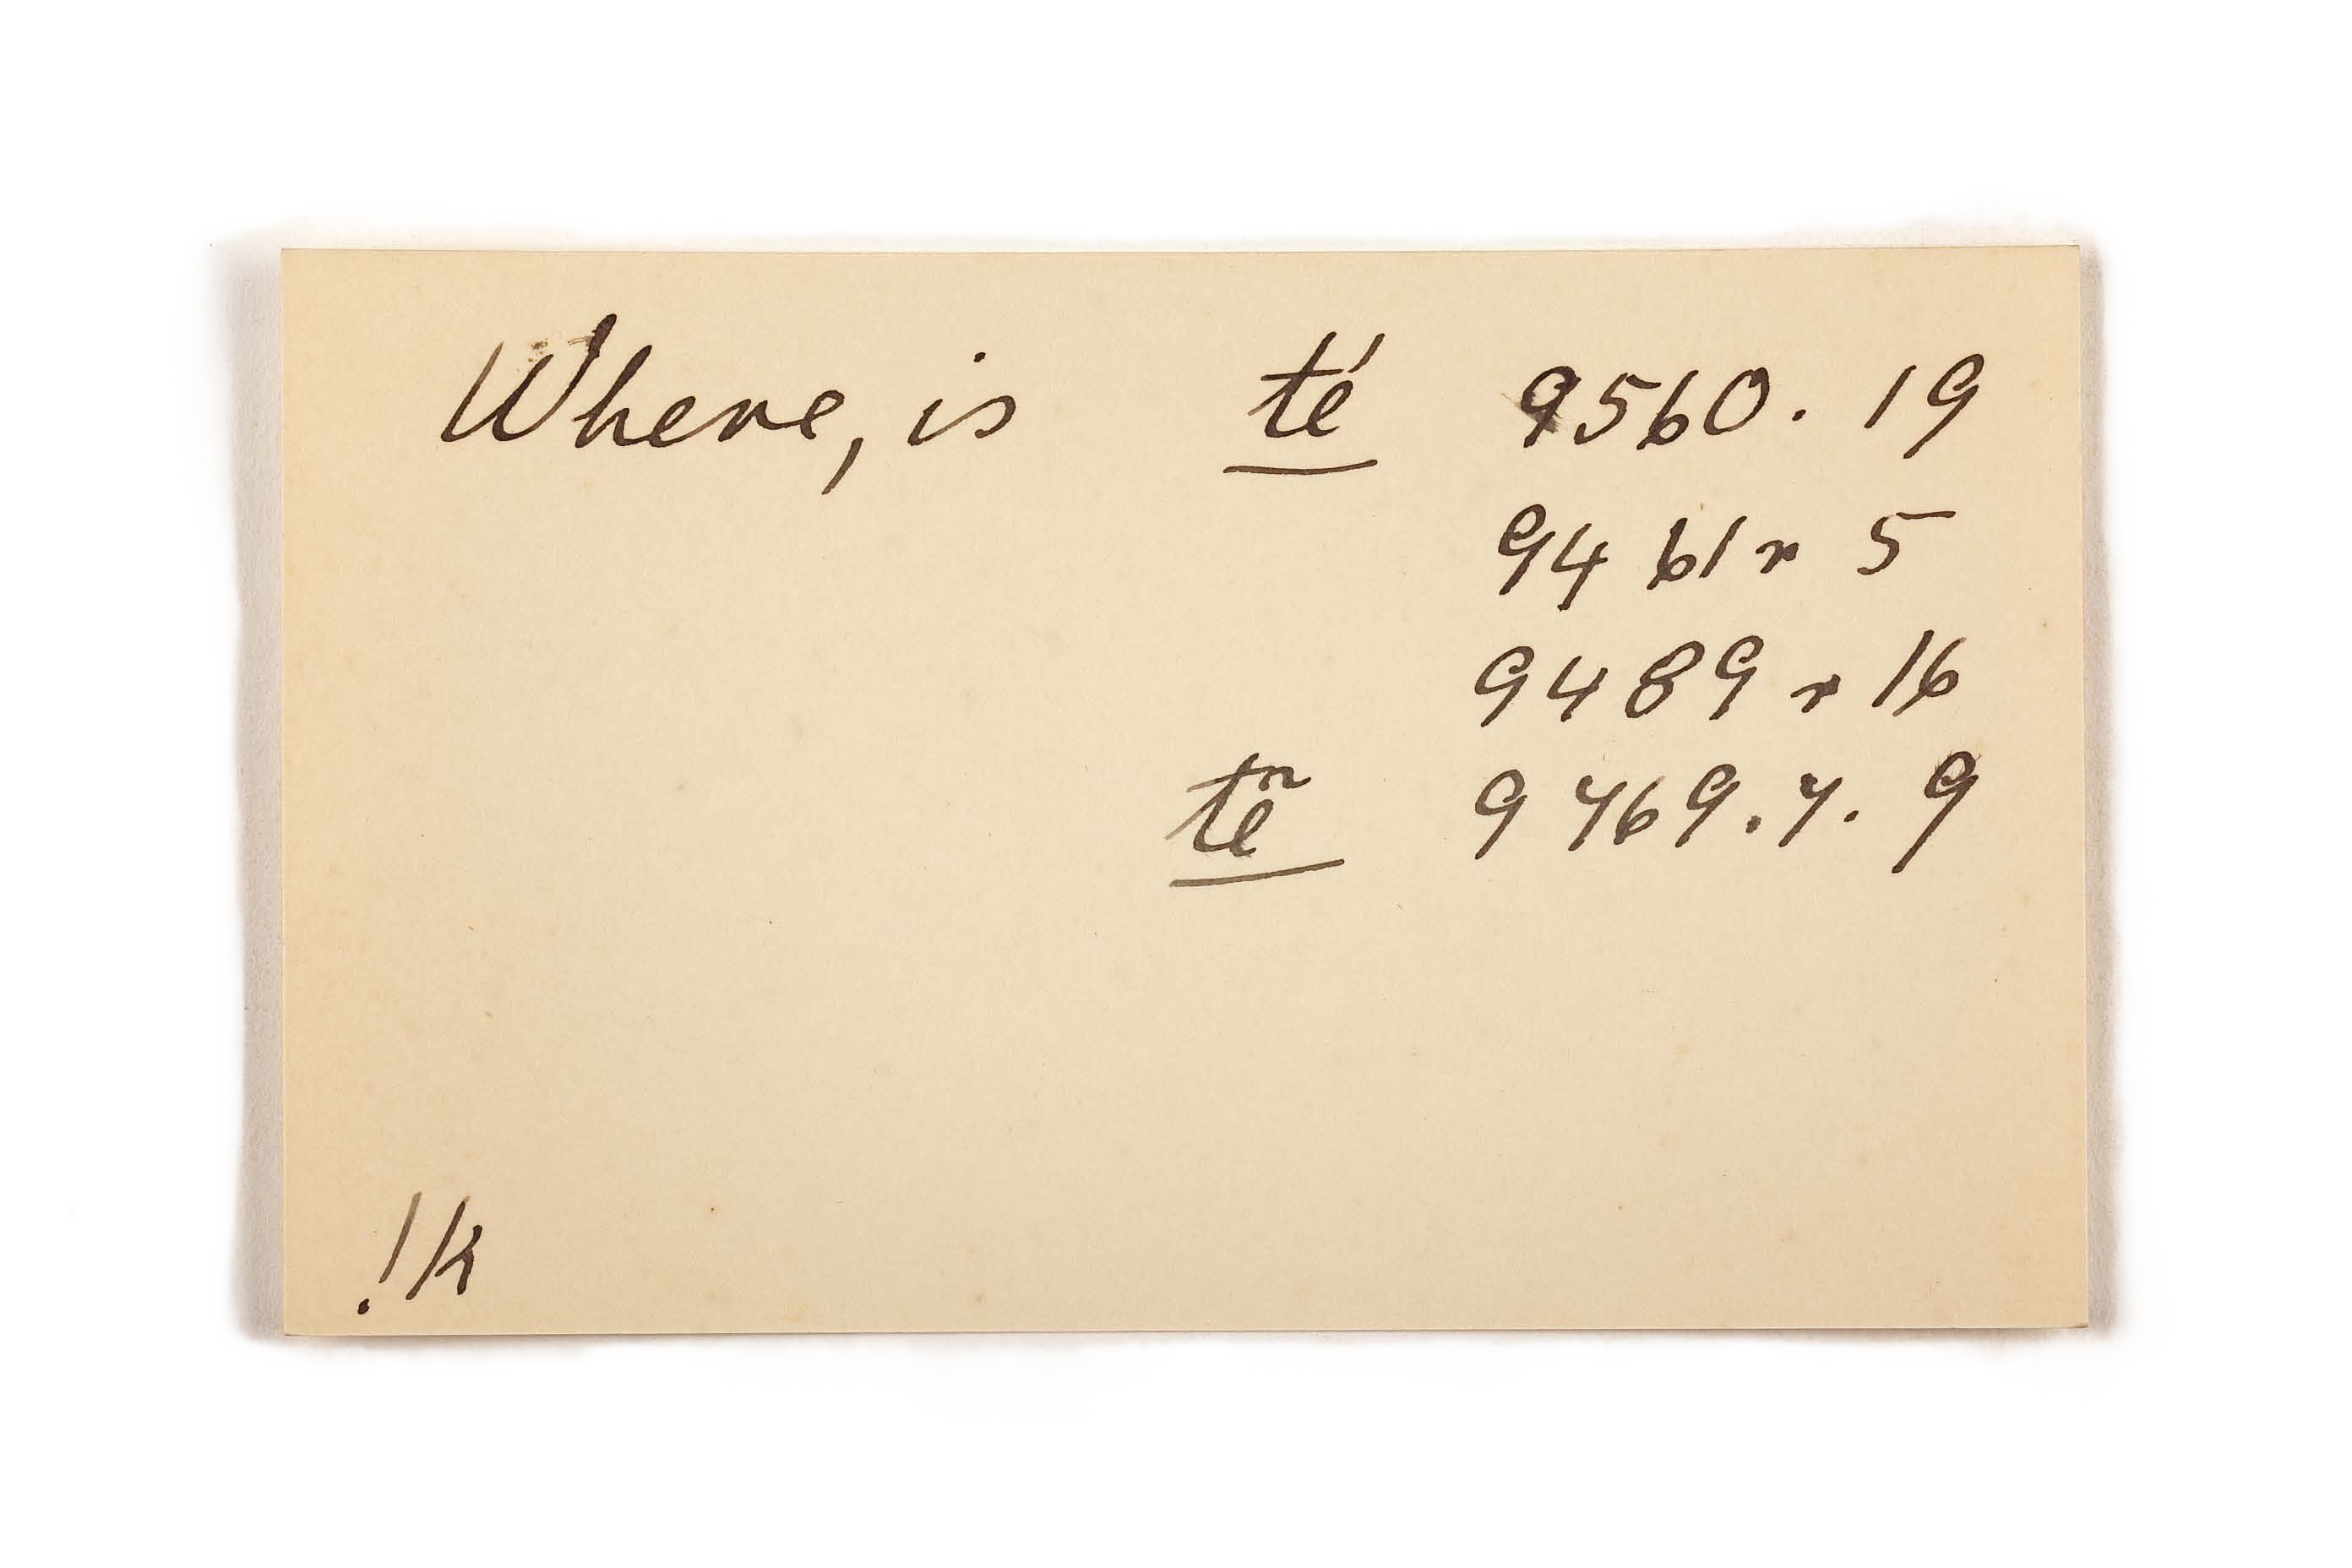 Where, is té 9560. 19
9461 r 5
9489 r 16
tẽ 9469. 7. 9
!k